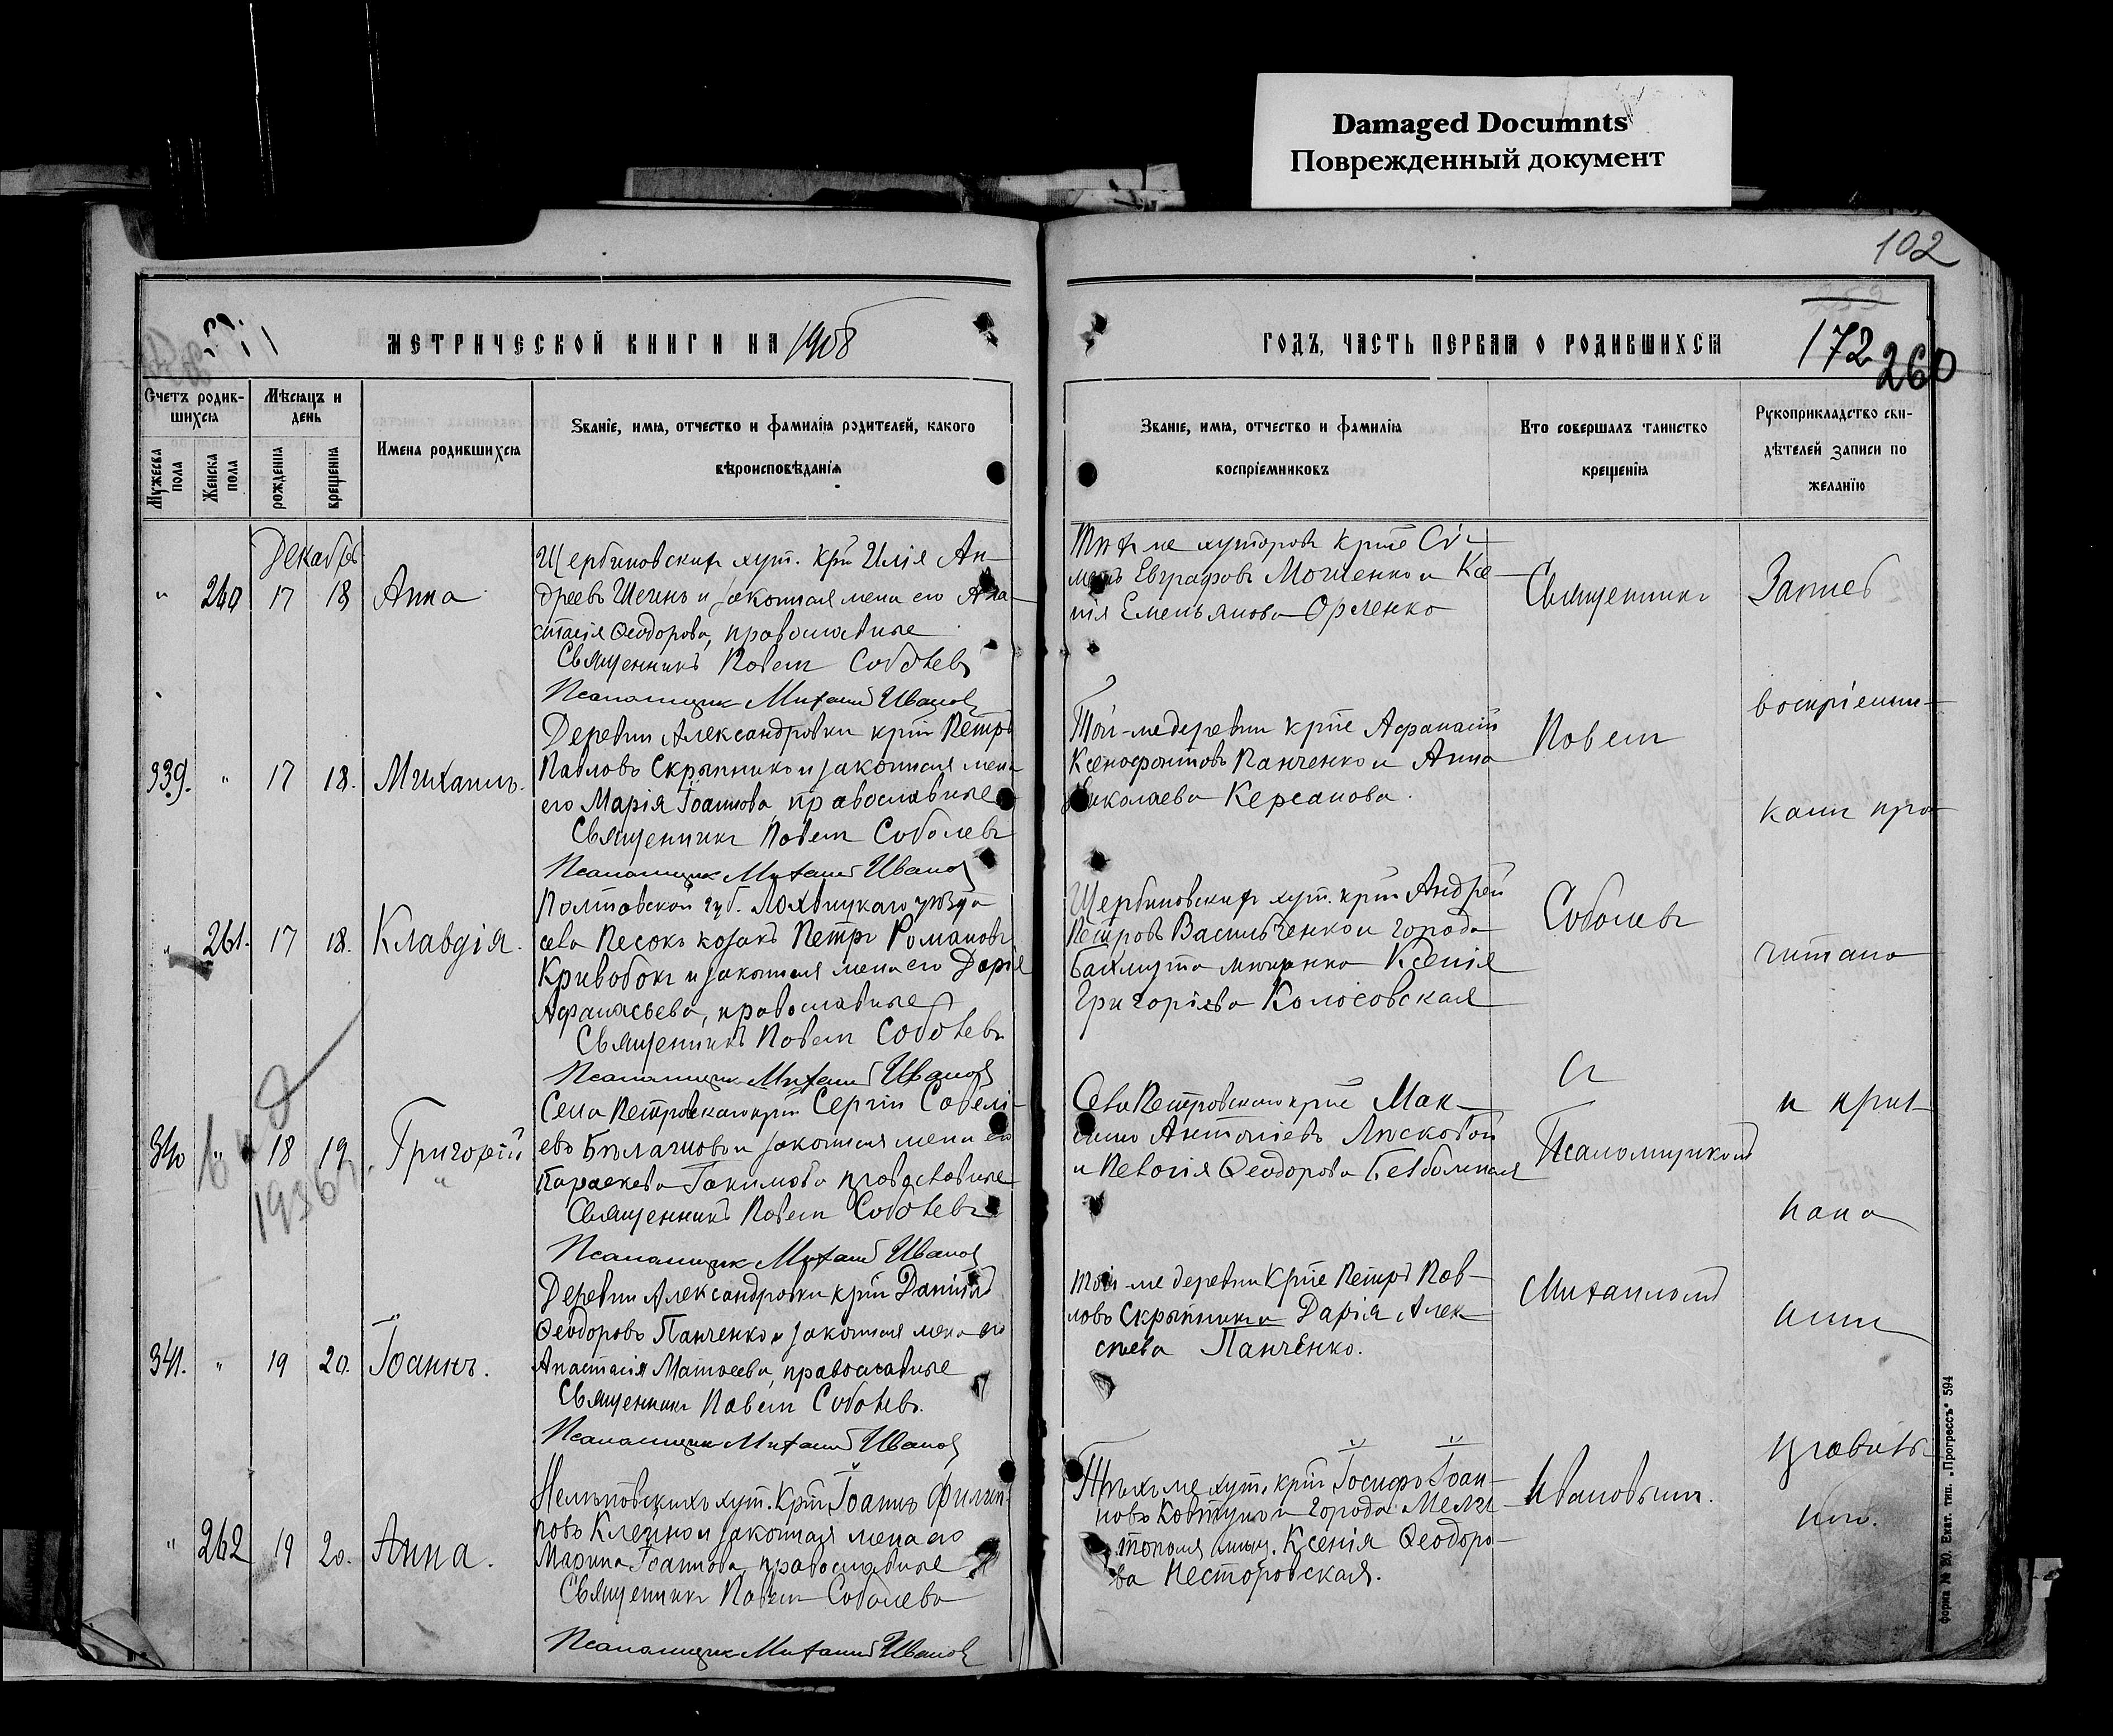 Damaged Documnts
Поврежденный документ
102
МЕТРИЧЕСКОЙ КНИГИ НА 1908
ГОДЪ, ЧАСТЬ ПЕРВАЯ О РОДИВШИХСЯ
172
260
Счетъ родив-
шихся
Мужеска пола
Женска пола
Мѣсяцъ и
день
рожденія
крещенія
Имена родившихся
Званіе, имя, отчество и фамилія родителей, какого
вѣроисповѣданія
Званіе, имя, отчество и фамилія
воспріемниковъ
Кто совершалъ таинство
крещенія
Рукоприкладство сви-
дѣтелей записи по
желанію
Декабрь
" 260 17 18 Анна
Щербиновскихъ хут. крн Илія Ан-
дреевъ и законная жена его Ана-
стасія Ѳеодорова, православные
Священникъ Павелъ Соболевъ
Псаломщик Михаил Иванов
Тѣхъ же хуторовъ крне Си-
меонъ Евграфовъ Мошенко и Ксе-
нія Емельянова Орленко
339. " 17 18. Михаилъ.
Деревни Александровки крн Петръ
Павловъ Скрыпникъ и законная жена
его Марія Іоаннова, православные
Священникъ Павелъ Соболевъ
Псаломщик Михаил Иванов
Той-же деревни крне Афанасій
Ксенофонтовъ Панченко и Анна
Николаева Керсанова.
" 261. 17 18. Клавдія.
Полтавской губ. Лохвицкаго уѣзда
села Песокъ козакъ Петръ Романовъ
Кривобокъ и законная жена его Дарія
Афанасьева, православные
Священникъ Павелъ Соболевъ
Псаломщик Михаил Иванов
Щербиновскихъ хут. крн Андрей
Петровъ Васильченко и города
Бахмута мѣщанка Ксенія
Григоріева Колосовская
340 " 18 19. Григорій
1936
Села Петровскаго крн Сергій Савелі-
евъ и законная жена его
Параскева Іакимова православные
Священникъ Павелъ Соболевъ
Псаломщик Михаил Иванов
Села Петровскаго крне Мак-
симъ Антоніевъ Лясковой
и Пелагія Ѳеодорова
341. " 19 20. Іоаннъ.
Деревни Александровки крн Даніилъ
Ѳеодоровъ Панченко и законная жена его
Анастасія Матѳеева, православные
Священникъ Павелъ Соболевъ.
Псаломщик Михаил Иванов
Той-же деревни крне Петръ Пав-
ловъ Скрыпникъ и Дарія Алек-
сѣева Панченко.
" 262 19 20. Анна.
хут. крн Іоаннъ Филип-
повъ и законная жена его
Марина Іоаннова, православные
Священникъ Павелъ Соболевъ
Псаломщик Михаил Иванов
Тѣхъ же хут. крн Іосифъ Іоан-
новъ Ковтунъ и города Мели-
тополя мѣщ. Ксенія Ѳеодоро-
ва Несторовская.
Священникъ
Павелъ
Соболевъ
съ
Псаломщикомъ
Михаиломъ
Ивановымъ.
Запись
воспріемни-
ками про-
читана
и приз-
нана
правиль-
ной.
форма № 20. Екат. тип. „Прогрессъ" 594